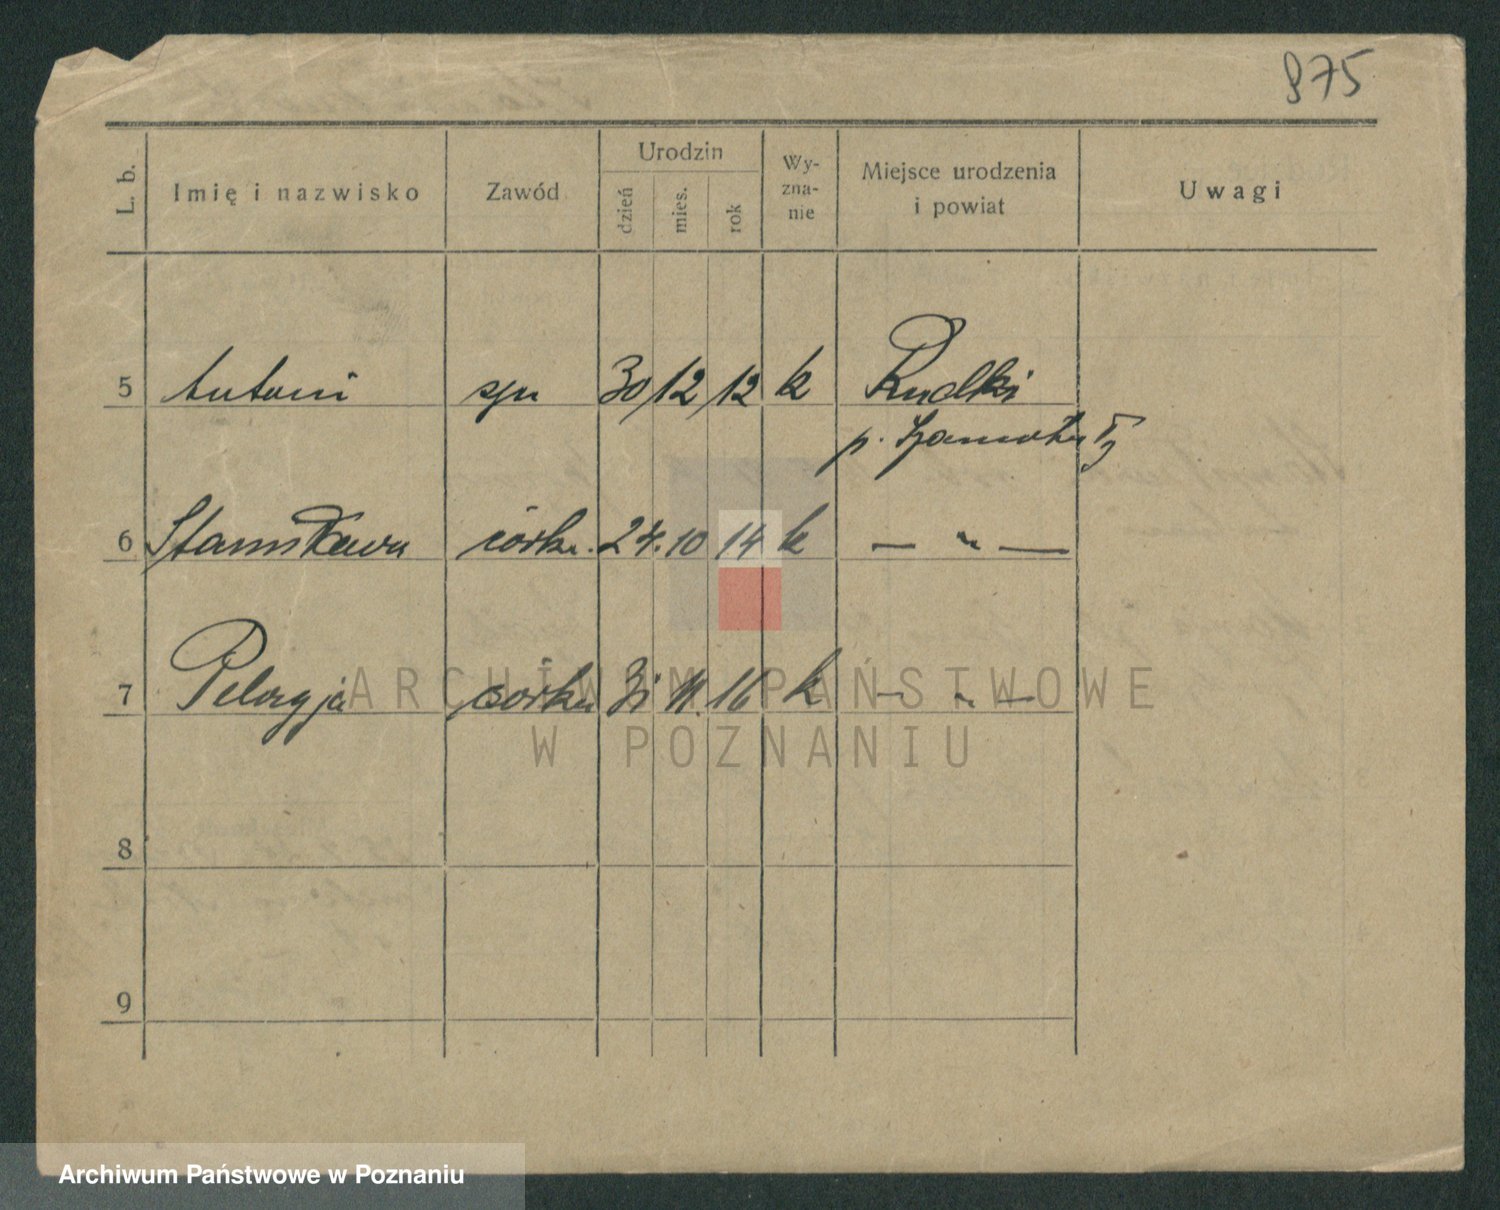 975
L. b. Imię i nazwisko Zawód Urodzin dzień mies. rok Wy-zna-nie Miejsce urodzenia i powiat Uwagi
5 Antoni syn 30/12/12 k Rudki
p. Szamotuły
6 Stanisława córka. 24. 10 14 k — " —
7 Pelagja córka 31 11. 16 k — " —
8
9
ARCHIWUM PAŃSTWOWE
W POZNANIU
Archiwum Państwowe w Poznaniu